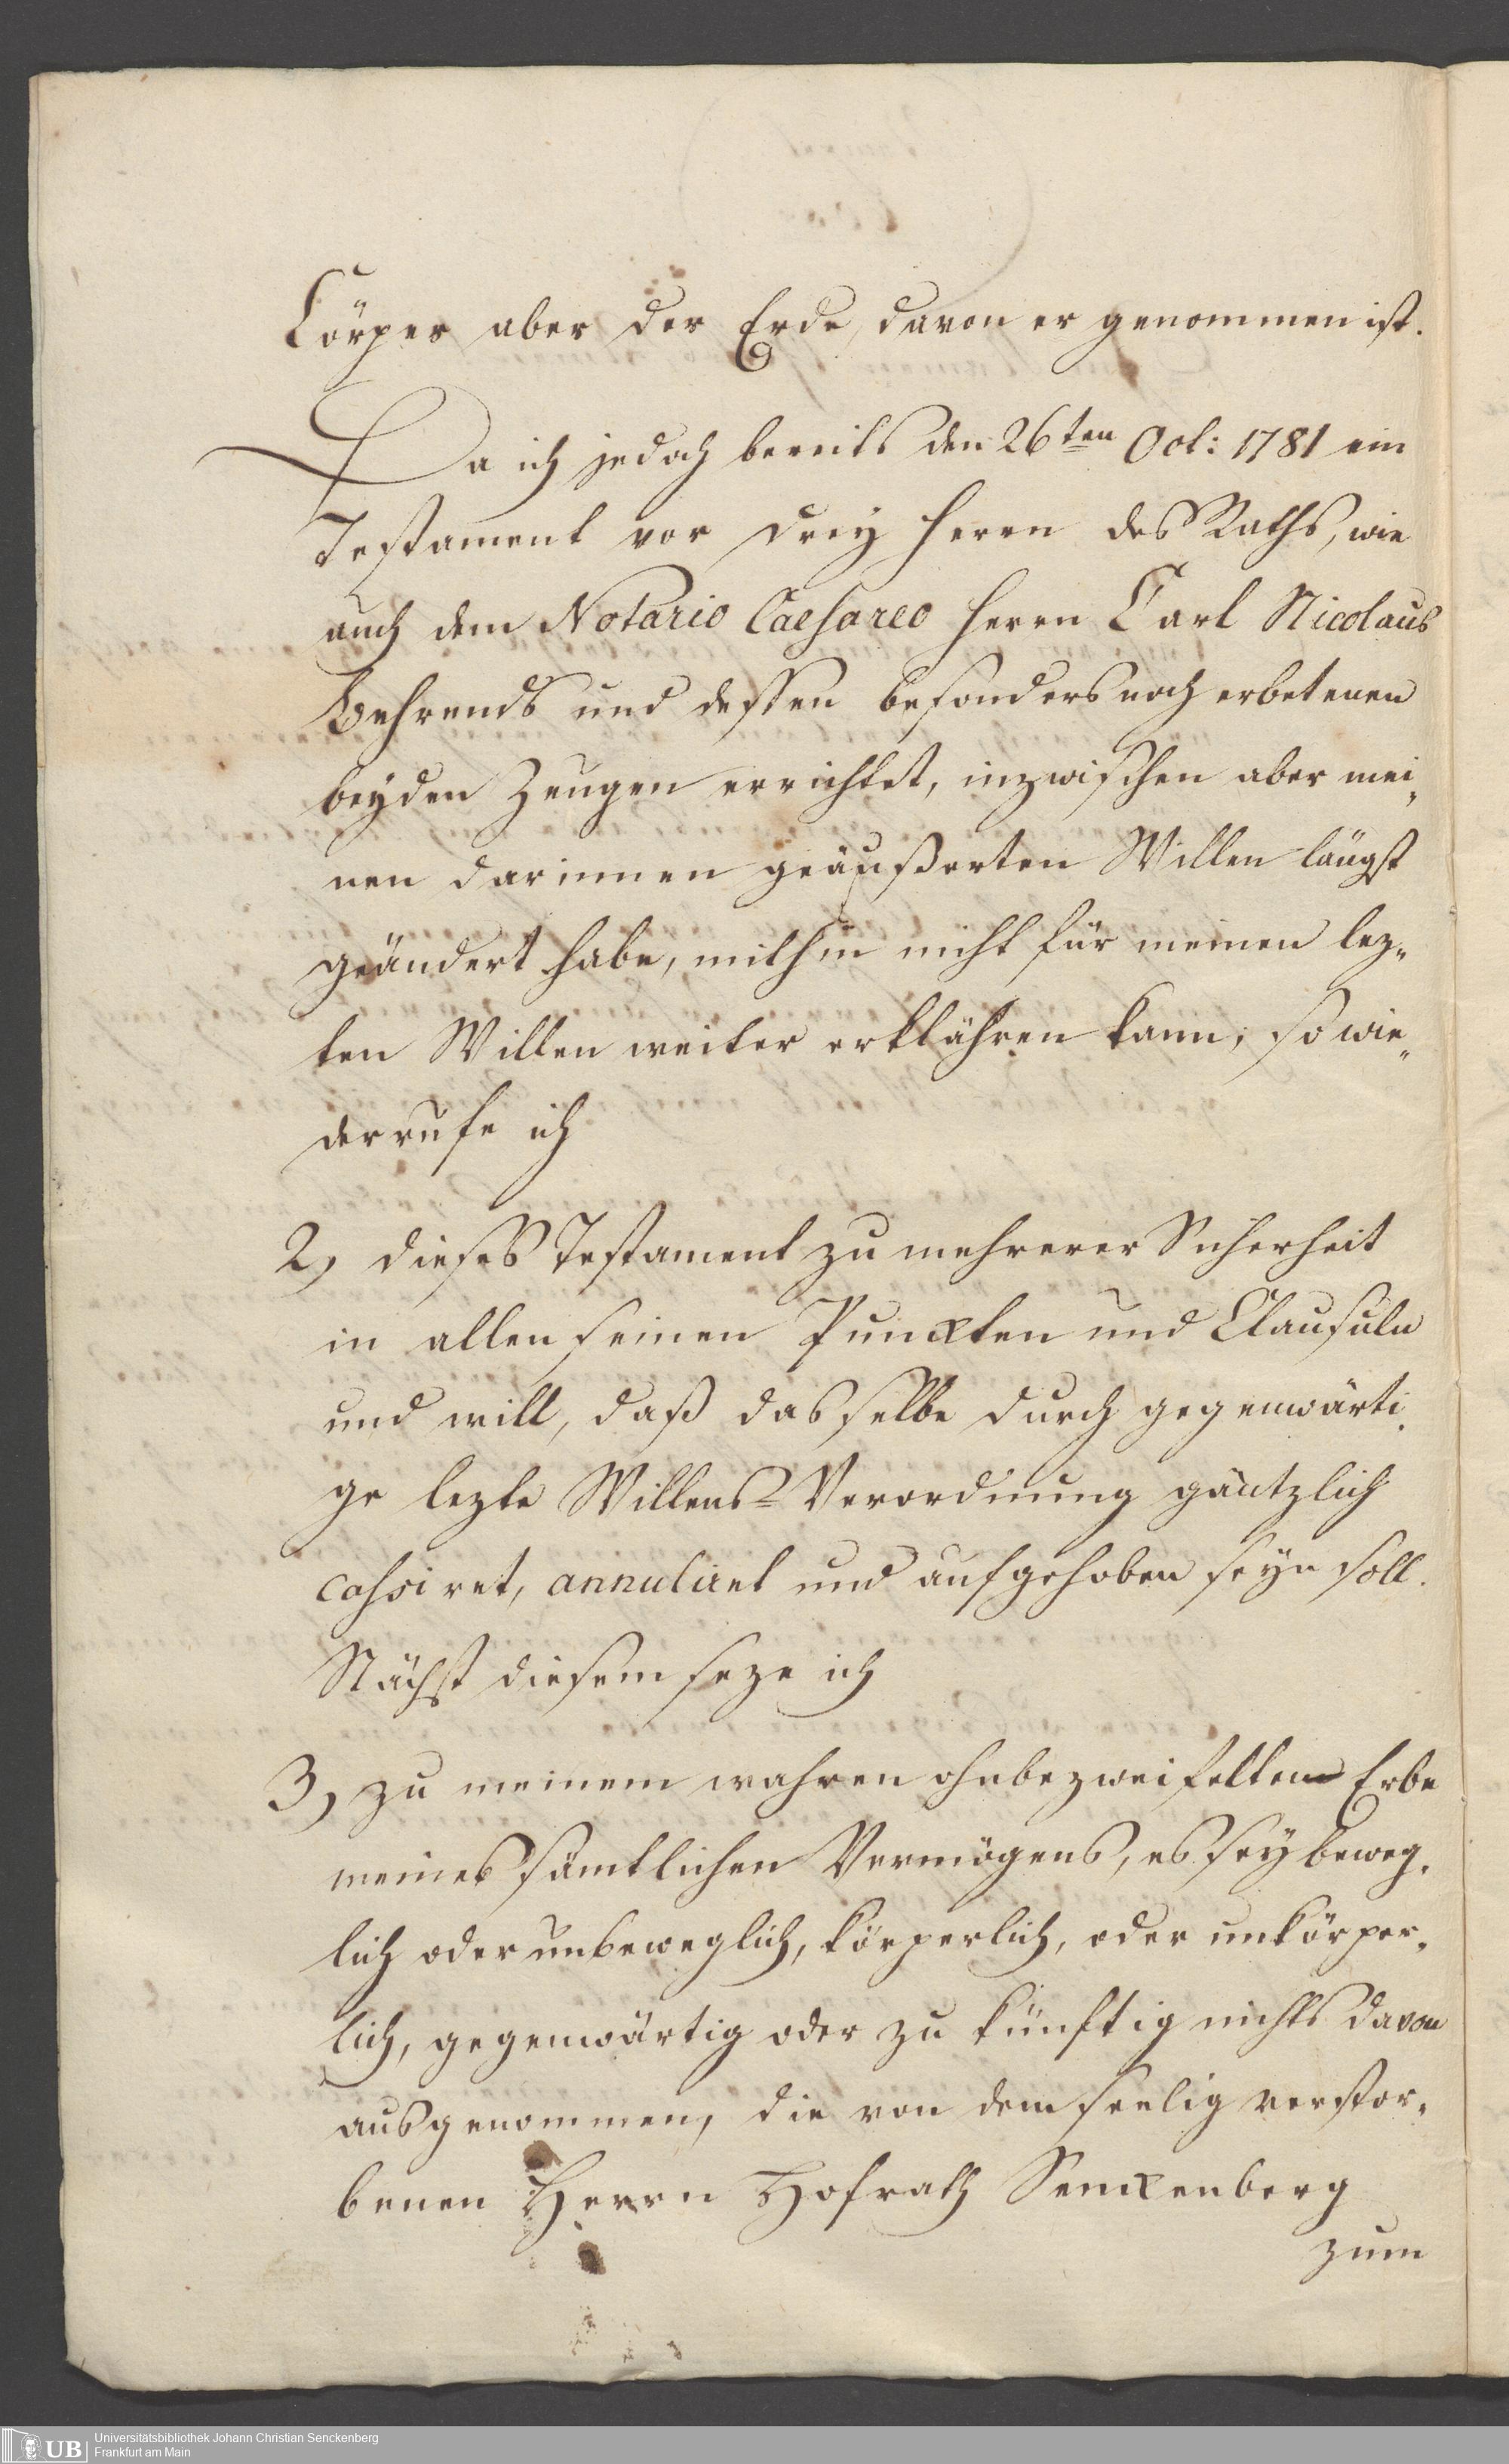 Cörper aber der Erde, davon er genommen ist.
Da ich jedoch bereits den 26ten Oct: 1781 ein
Testament vor drey Herrn des Raths, wie
auch dem Notario Caesareo Herrn Carl Nicolaus
Behrends und dessen besonders noch erbetenen
beyden Zeugen errichtet, inzwischen aber mei„
nen darinnen geäußerten Willen längst
geändert habe, mithin nicht für meinen lez„
ten Willen weiter erklähren kann; so wie„
derrufe ich
2, dieses Testament zu mehrerer Sicherheit
in allen seinen Punckten und Clausuln
und will, daß dasselbe durch gegenwärti„
ge lezte Willens-Verordnung gäntzlich
cassiret, annuliret und aufgehoben seyn soll.
Nächst diesem seze ich
3, zu meinem wahren ohnbezweifelten Erbe
meines sämtlichen Vermögens, es sey beweg„
lich oder unbeweglich, körperlich, oder unkörper„
lich, gegenwärtig oder zu künftig nichts davon
ausgenommen, die von dem seelig verstor„
benen Herrn Hofrath Senckenberg
zum
UB
Universitätsbibliothek Johann Christian Senckenberg
Frankfurt am Main